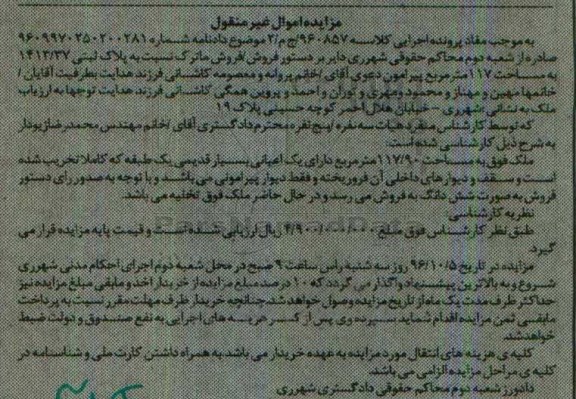 مزایده اموال غیر منقول
به موجب مفاد پرونده اجرایی کلاسه ۹۶۰۸۵۷/ج م/۲ موضوع دادنامه شماره ۹۶۰۹۹۷۰۲۵۰۲۰۰۲۸۱
صادره از شعبه دوم محاکم حقوقی شهرری دایر بر دستور فروش/فروش ماترک نسبت به پلاک ثبتی ۱۴۱۳/۳۷
به مساحت ۱۱۷ متر مربع پیرامون دعوی آقای/خانم پروانه و معصومه کاشانی فرزند هدایت بطرفیت آقایان/
خانمها مهین و مهناز و محمود و مهری و توران و احمد و پروین همگی کاشانی فرزند هدایت توجها به ارزیاب
ملک به نشانی شهرری - خیابان هلال احمر کوچه حسینی پلاک ۱۹
که توسط کارشناس منفرد هیات سه نفره/پنج نفره محترم دادگستری آقای/خانم مهندس محمدرضا ژیودار
به شرح ذیل کارشناسی شده است:
ملک فوق به مساحت ۱۱۷/۹۰ متر مربع دارای یک اعیانی بسیار قدیمی یک طبقه که کاملا تخریب شده
است و سقف و دیوارهای داخلی آن فرو ریخته و فقط دیوار پیرامونی می باشد و با توجه به صدور رای دستور
فروش به صورت شش دانگ به فروش می رسد و در حال حاضر ملک فوق تخلیه می باشد.
نظریه کارشناسی:
طبق نظر کارشناس فوق مبلغ ریال ارزیابی شده است و قیمت پایه مزایده قرار می
گیرد.
مزایده در تاریخ ۹۶/۱۰/۵ روز سه شنبه راس ساعت ۹ صبح در محل شعبه دوم اجرای احکام مدنی شهرری
شروع و به بالاترین پیشنهاد واگذار می گردد که ۱۰ درصد مبلغ مزایده از خریدار اخذ و مابقی مبلغ مزایده نیز
حداکثر ظرف مدت یک ماه از تاریخ مزایده وصول خواهد شد چنانچه خریدار ظرف مهلت مقرر نسبت به پرداخت
مابقی ثمن مزایده اقدام ننماید سپرده وی پس از کسر هزینه های اجرایی به نفع صندوق و دولت ضبط
خواهد شد.
کلیه ی هزینه های انتقال مورد مزایده به عهده خریدار می باشد به همراه داشتن کارت ملی و شناسنامه در
کلیه ی مراحل مزایده الزامی می باشد.
دادورز شعبه دوم محاکم حقوقی دادگستری شهرری